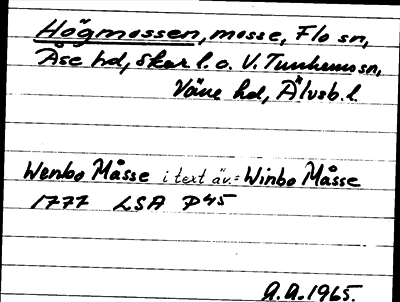 Högmossen, mosse, Flo sn,
Åse hd, Skar l. o. V. Tunhems sn,
Väne hd, Älvsb. l.
Wenbo Måsse i text äv. = Winbo Måsse
1777 LSA P45
A.A. 1965.